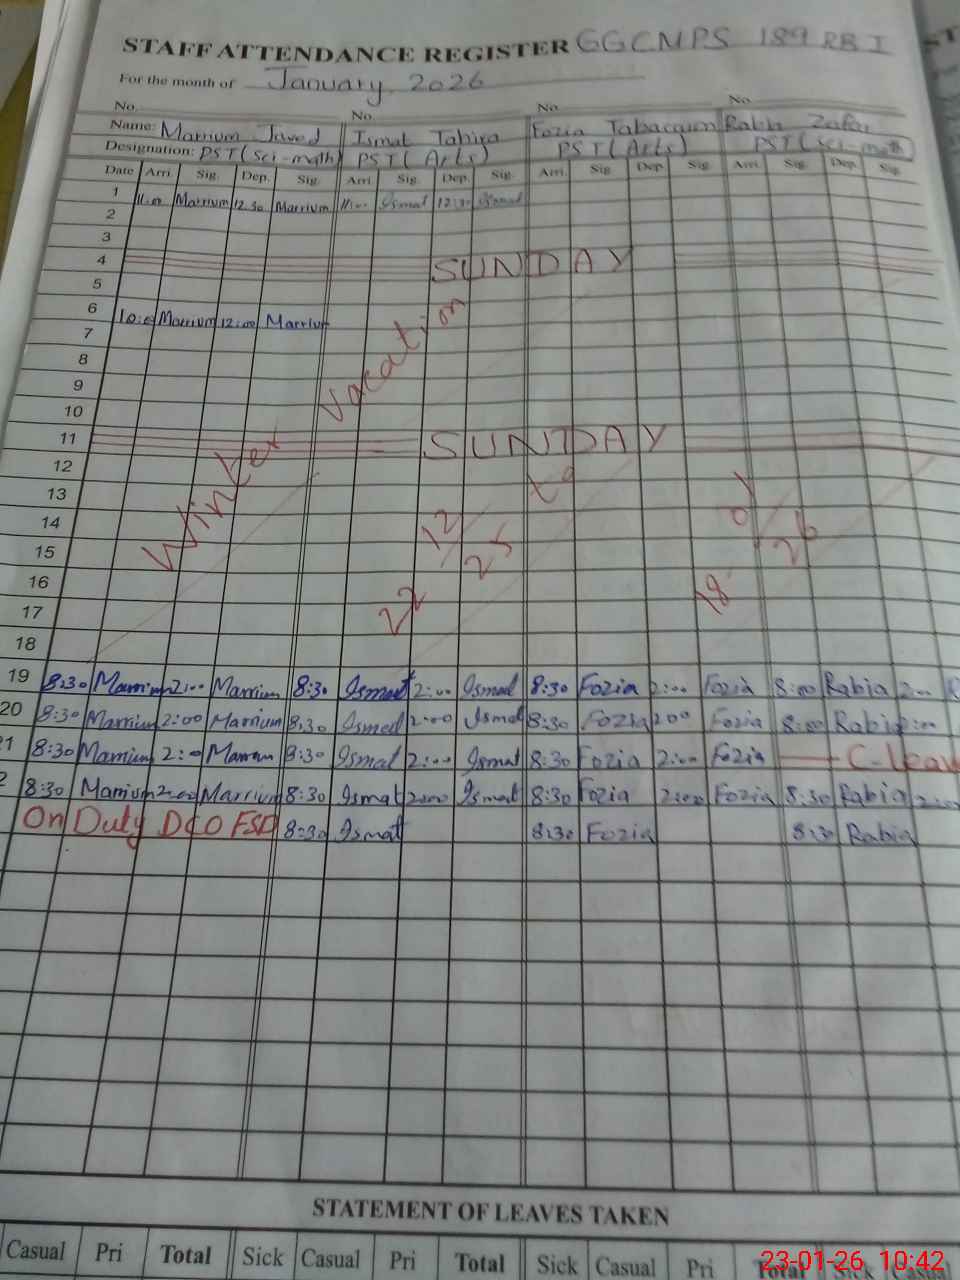 STAFF ATTENDANCE REGISTER GGCMPS 189 RB I
For the month of January, 2026
No. No. No. No.
Name: Marrium Javed Ismat Tahira Fozia Tabassum Rabia Zafar
Designation: PST (Sci-math) PST (Arts) PST (Arts) PST (Sci-math)
Date Arri. Sig. Dep. Sig. Arri. Sig. Dep. Sig. Arri. Sig. Dep. Sig. Arri. Sig. Dep. Sig.
1 11:00 Marrium 12:30 Marrium 11:00 Ismat 12:30 Ismat
2
3
4 SUNDAY
5
6 10:0 Marrium 12:00 Marrium
7
8
9
10
11 SUNDAY
12
13
14
15
16
17
18
Winter Vacation
22/12/25 to 18/01/26
19 8:30 Marrium 2:00 Marrium 8:30 Ismat 2:00 Ismat 8:30 Fozia 2:00 Fozia 8:00 Rabia 2:00
20 8:30 Marrium 2:00 Marrium 8:30 Ismat 2:00 Ismat 8:30 Fozia 200 Fozia 8:00 Rabia 2:00
1 8:30 Marrium 2:00 Marrium 8:30 Ismat 2:00 Ismat 8:30 Fozia 2:00 Fozia C-leav
2 8:30 Marrium 2:00 Marrium 8:30 Ismat 2:00 Ismat 8:30 Fozia 2:00 Fozia 8:30 Rabia 2:00
On Duty DCO FSD 8:30 Ismat 8:30 Fozia 8:30 Rabia
STATEMENT OF LEAVES TAKEN
Casual Pri Total Sick Casual Pri Total Sick Casual Pri Total Sick Casual
23-01-26 10:42